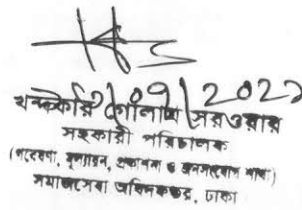 /09/2022
খন্দকার গোলাম সরওয়ার
সহকারী পরিচালক
(গবেষণা, মূল্যায়ন, প্রকাশনা ও জনসংযোগ শাখা)
সমাজসেবা অধিদফতর, ঢাকা